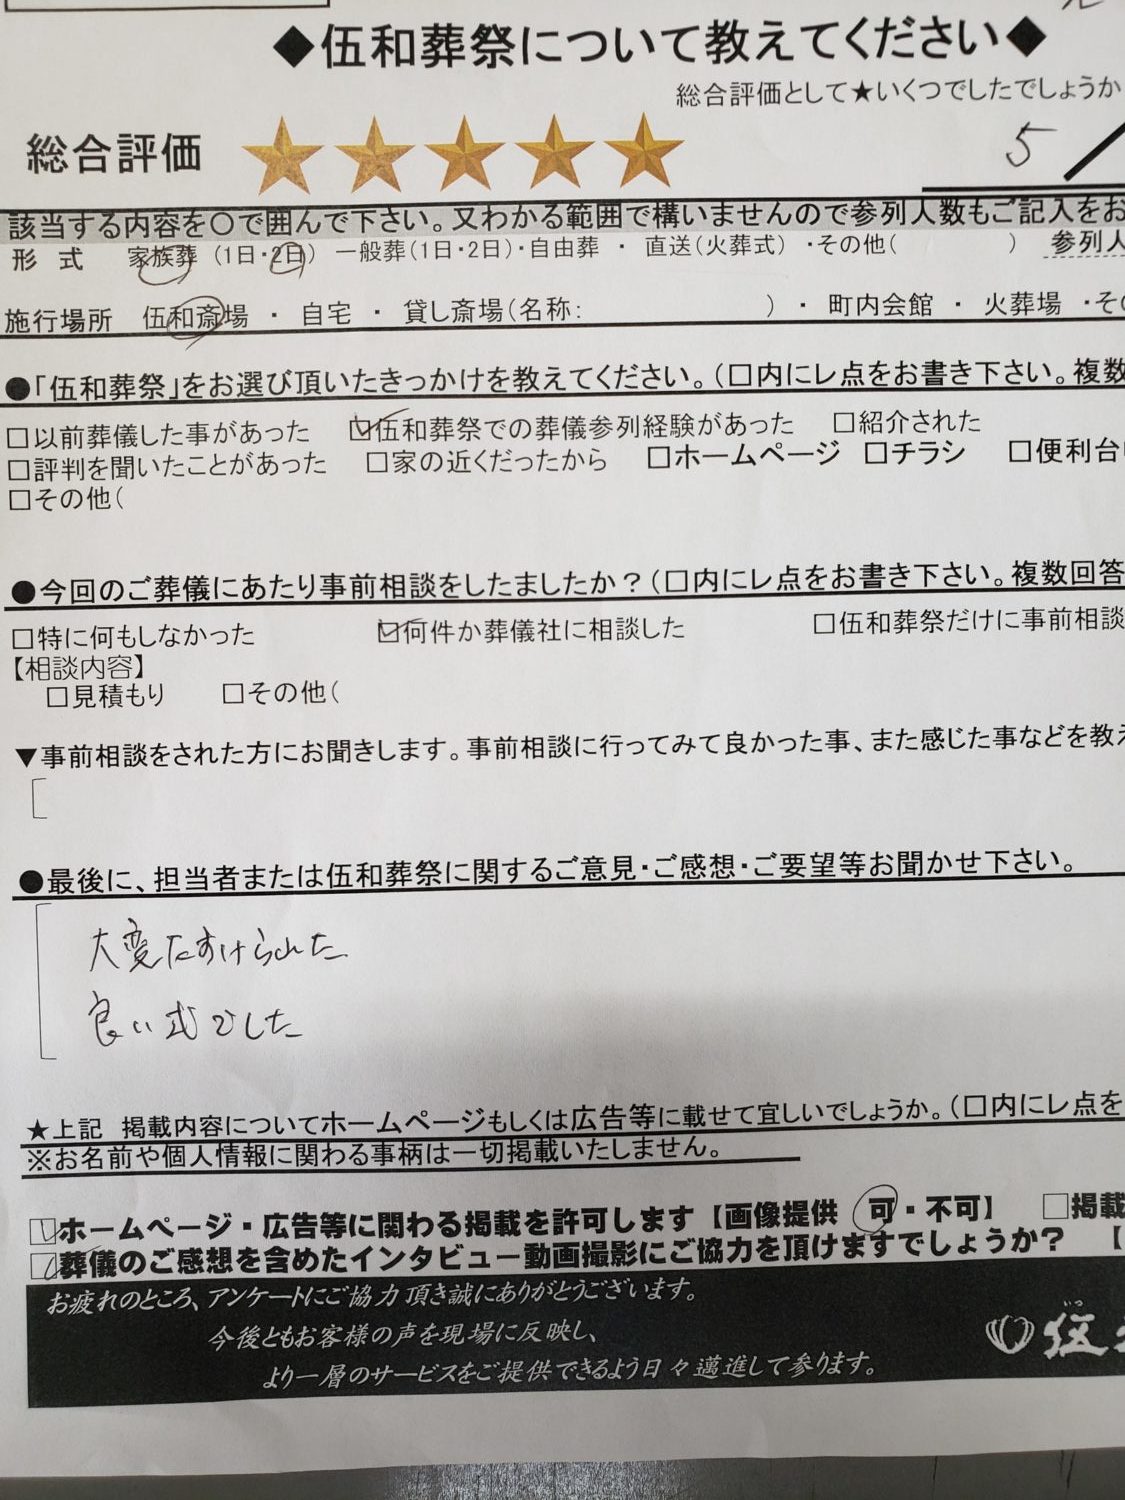 ◆伍和葬祭について教えてください◆
総合評価として★いくつでしたでしょうか
総合評価 ★★★★★ 5/
該当する内容を○で囲んで下さい。又わかる範囲で構いませんので参列人数もご記入をお
形 式 家族葬 (1日・2日) 一般葬(1日・2日)・自由葬 ・ 直送(火葬式) ・その他( ) 参列人
施行場所 伍和斎場 ・ 自宅 ・ 貸し斎場(名称: ) ・ 町内会館 ・ 火葬場 ・その
●「伍和葬祭」をお選び頂いたきっかけを教えてください。(□内にレ点をお書き下さい。複数
□以前葬儀した事があった ☑伍和葬祭での葬儀参列経験があった □紹介された
□評判を聞いたことがあった □家の近くだったから □ホームページ □チラシ □便利台
□その他(
●今回のご葬儀にあたり事前相談をしたましたか？(□内にレ点をお書き下さい。複数回答
□特に何もしなかった ☑何件か葬儀社に相談した □伍和葬祭だけに事前相談
【相談内容】
□見積もり □その他(
▼事前相談をされた方にお聞きします。事前相談に行ってみて良かった事、また感じた事などを教え
●最後に、担当者または伍和葬祭に関するご意見・ご感想・ご要望等お聞かせ下さい。
大変たすけられた
良い式でした
★上記 掲載内容についてホームページもしくは広告等に載せて宜しいでしょうか。(□内にレ点を
※お名前や個人情報に関わる事柄は一切掲載いたしません。
☑ホームページ・広告等に関わる掲載を許可します【画像提供 可・不可】 □掲載
☑葬儀のご感想を含めたインタビュー動画撮影にご協力を頂けますでしょうか？ 【
お疲れのところ、アンケートにご協力頂き誠にありがとうございます。
今後ともお客様の声を現場に反映し、
より一層のサービスをご提供できるよう日々邁進して参ります。
いつ
伍